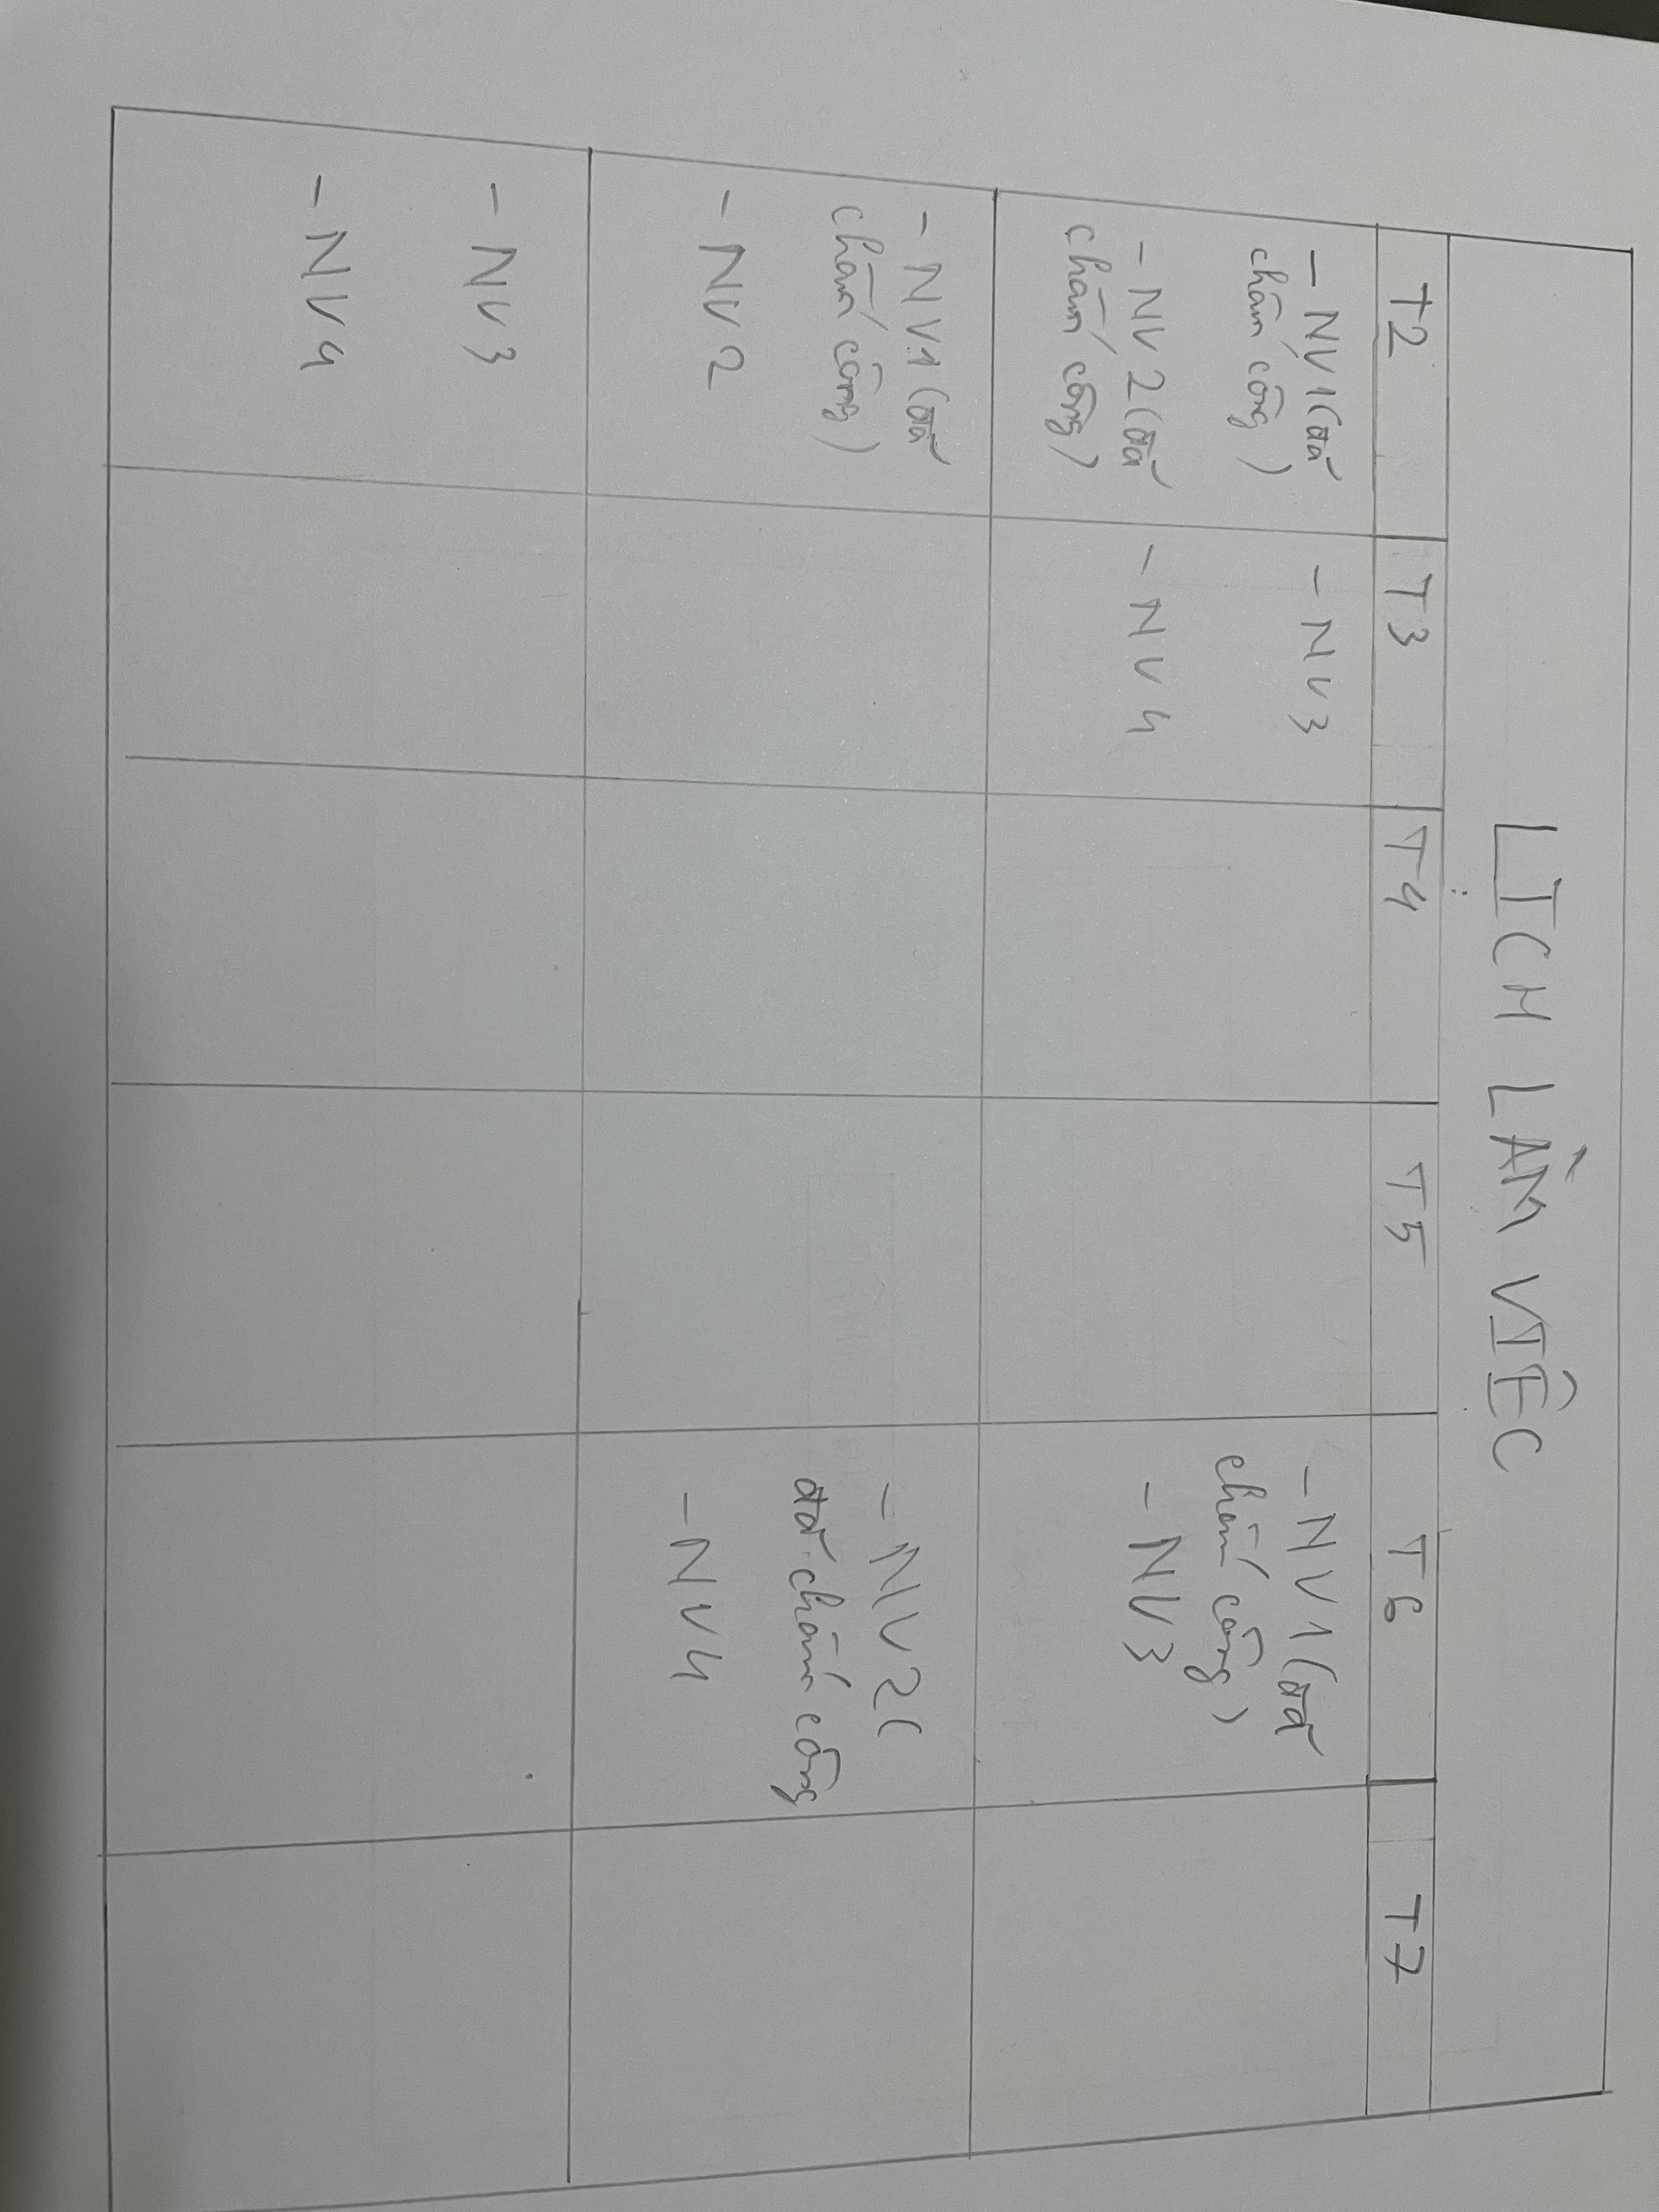 LỊCH LÀM VIỆC
T2 T3 T4 T5 T6 T7
- NV1 (đã
chấm công)
- NV2 (đã
chấm công)
- NV3
- NV4
- NV1 (đã
chấm công)
- NV3
- NV1 (đã
chấm công)
- NV2
- NV2 (
đã chấm công
- NV4
- NV3
- NV4